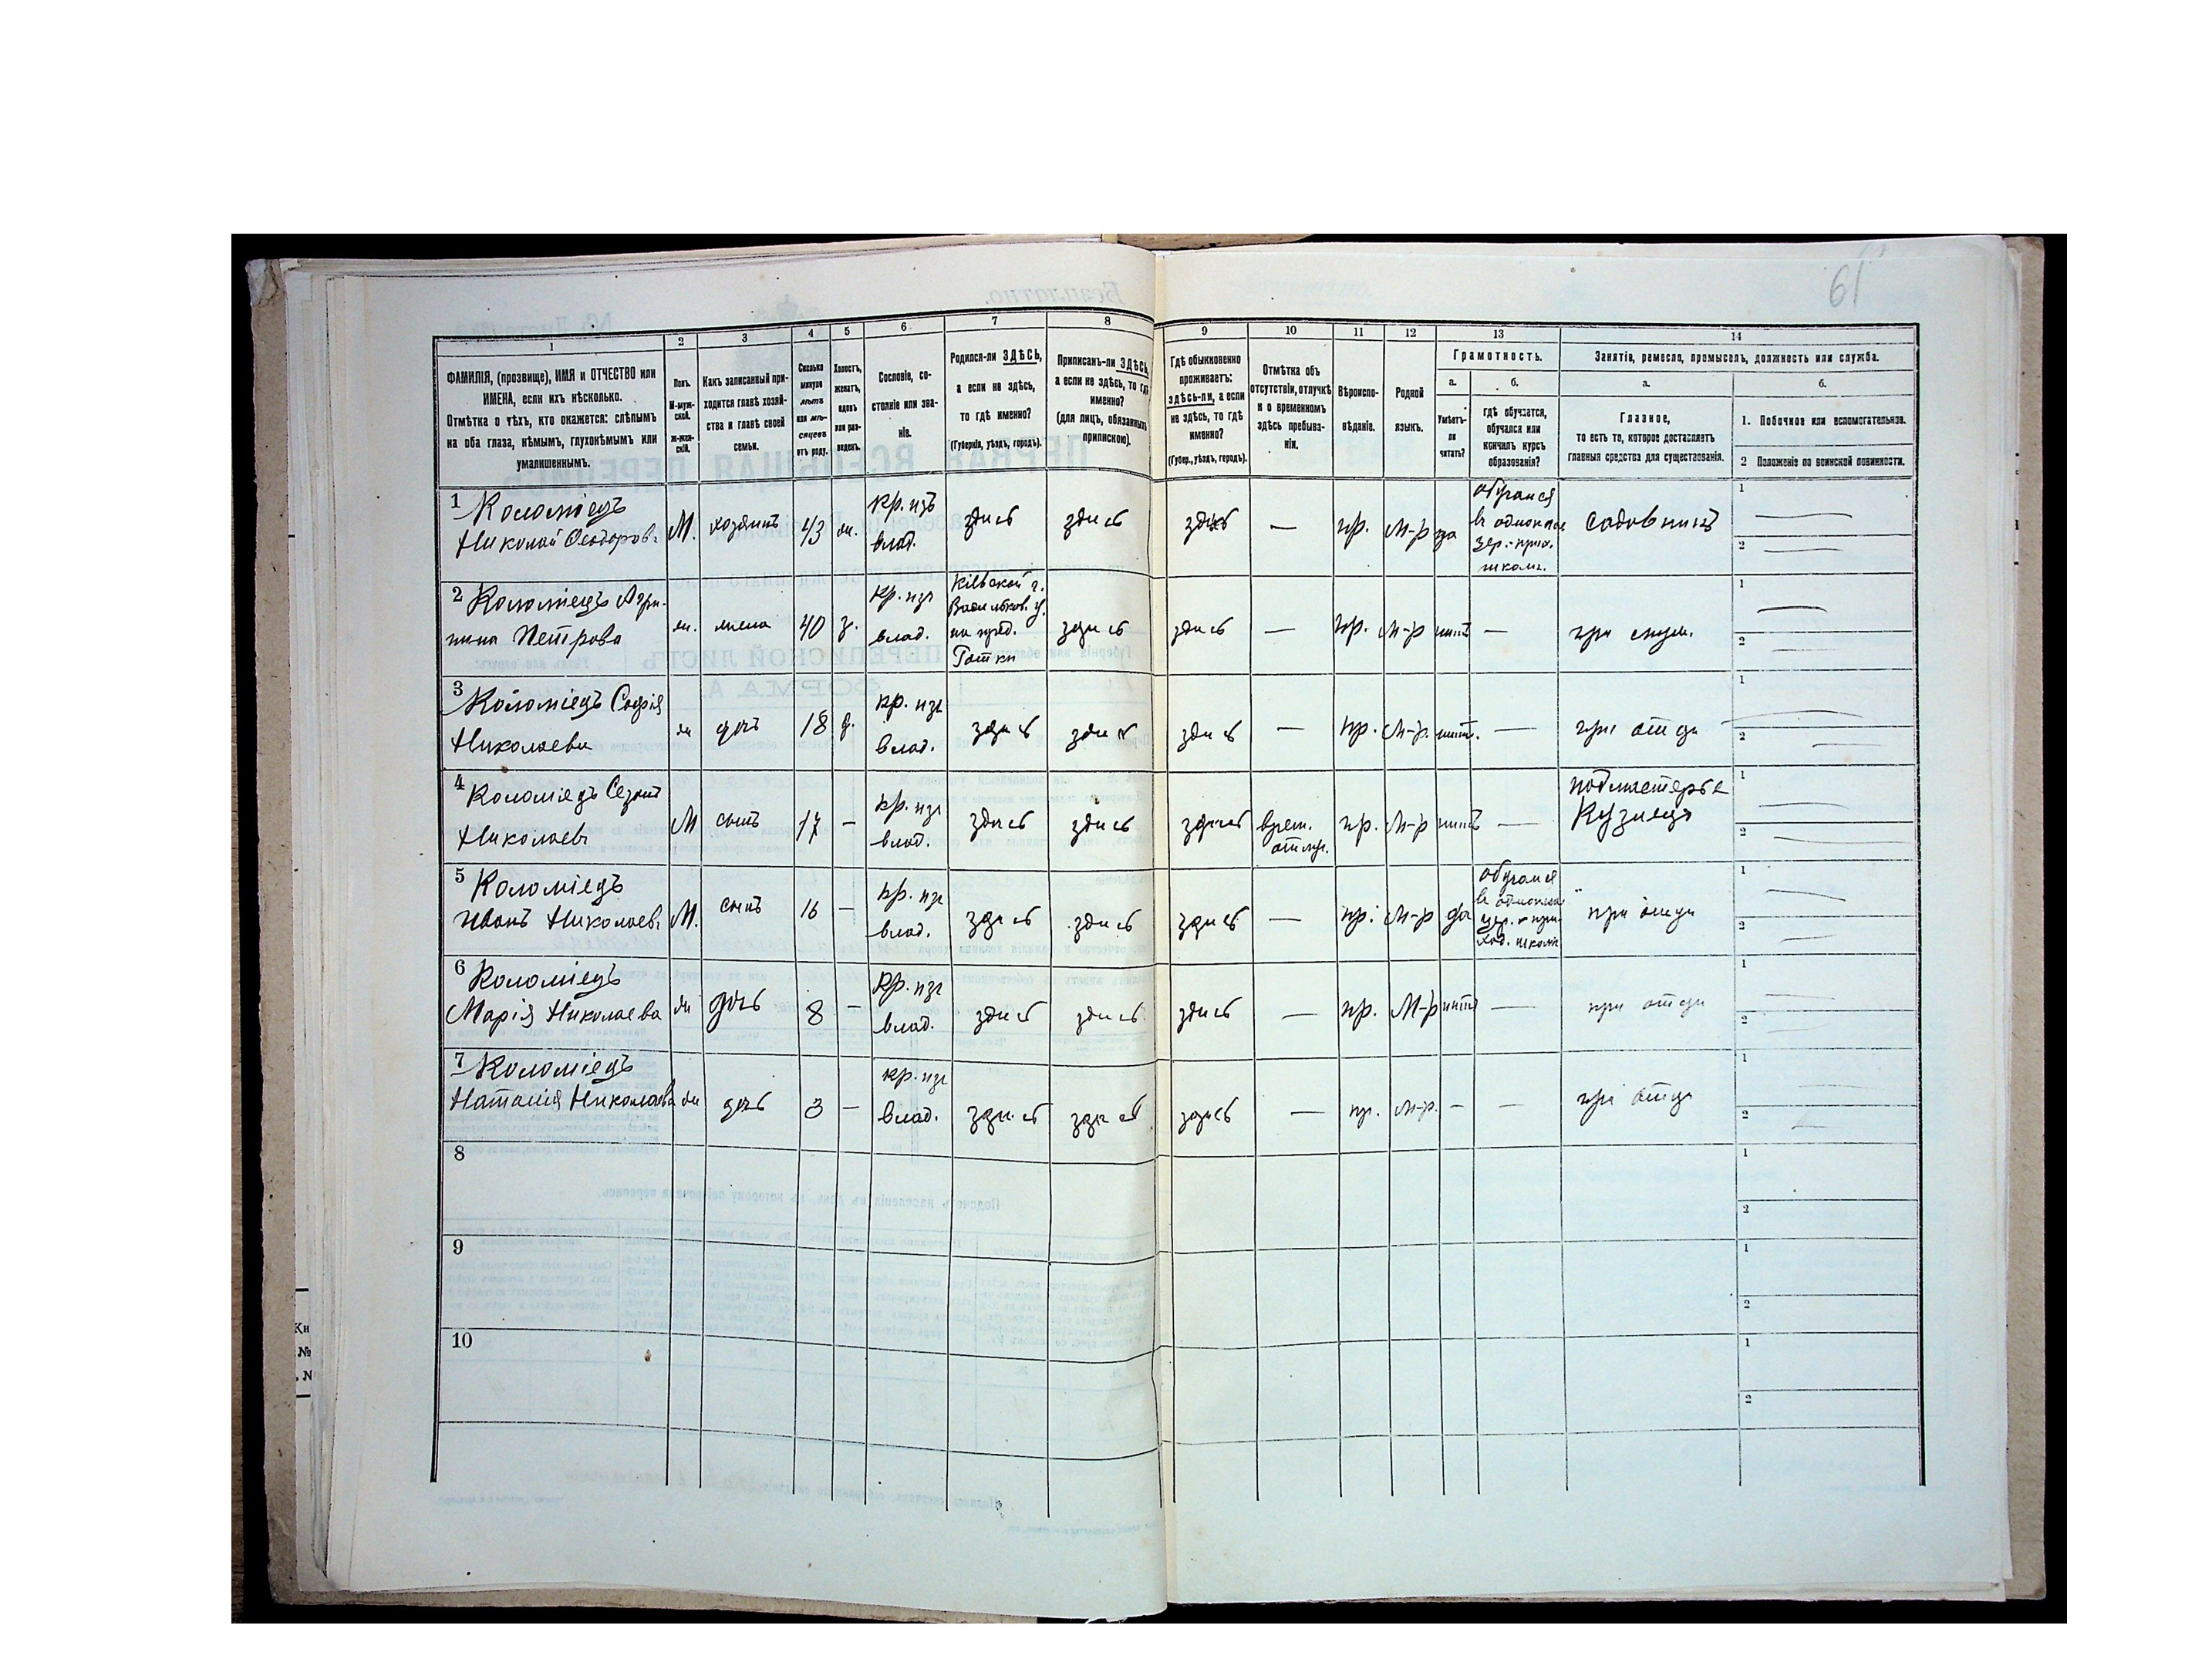 61
1 2 3 4 5 6 7 8 9 10 11 12 13 14
ФАМИЛІЯ, (прозвище), ИМЯ и ОТЧЕСТВО или
ИМЕНА, если ихъ нѣсколько.
Отмѣтка о тѣхъ, кто окажется: слѣпымъ
на оба глаза, нѣмымъ, глухонѣмымъ или
умалишеннымъ.
Полъ.
М-муж-
ской.
ж-жен-
скій.
Какъ записанный при-
ходится главѣ хозяй-
ства и главѣ своей
семьи.
Сколько
минуло
лѣтъ
или мѣ-
сяцевъ
отъ роду.
Холостъ,
женатъ,
вдовъ
или раз-
веденъ.
Сословіе, со-
стояніе или зва-
ніе.
Родился-ли ЗДѢСЬ,
а если не здѣсь,
то гдѣ именно?
(Губернія, уѣздъ, городъ).
Приписанъ-ли ЗДѢСЬ,
а если не здѣсь, то гдѣ
именно?
(для лицъ, обязанныхъ
припискою).
Гдѣ обыкновенно
проживаетъ:
здѣсь-ли, а если
не здѣсь, то гдѣ
именно?
(Губер., уѣздъ, городъ).
Отмѣтка объ
отсутствіи, отлучкѣ
и о временномъ
здѣсь пребыва-
ніи.
Вѣроиспо-
вѣданіе.
Родной
языкъ.
Грамотность.
а.
Умѣетъ-
ли
читать?
б.
гдѣ обучается,
обучался или
кончилъ курсъ
образованія?
Занятіе, ремесло, промыселъ, должность или служба.
а.
Главное,
то есть то, которое доставляетъ
главныя средства для существованія.
б.
1. Побочное или вспомогательное.
2 Положеніе по воинской повинности.
1 Коломіецъ
Николай Ѳеодоров. М. хозяинъ 43 ж. кр. изъ
влад. здись здись здись — пр. М-р да обучался
в однокла
цер.-прих.
школ. садовникъ
1
2
2 Коломіецъ
Петрова ж. жена 40 з. кр. изъ
влад. Кіевской г.
Васильков. у.
здись здись — пр. М-р нитъ —
1
2
3 Коломіецъ Софія
Николаева ж дочь 18 д. кр. изъ
влад. здись здись здись — пр. М-р. нитъ. — при отци
1
2
4 Коломіецъ
Николаев М сынъ 17 — кр. изъ
влад. здись здись здись врем.
отлуч. пр. М-р нитъ — подмастерье
Кузнеца
1
2
5 Коломіецъ
Иванъ Николаев. М. сынъ 16 — кр. изъ
влад. здись здись здись — пр. М-р да обучался
в однокла
цер. при-
ход. школи при отци
1
2
6 Коломіецъ
Марія Николаева ж дочь 8 — кр. изъ
влад. здись здись здись — пр. М-р нитъ — при отци
1
2
7 Коломіецъ
Наталія Николаева ж дочь 3 — кр. изъ
влад. здись здись здись — пр. М-р. — — при отци
1
2
8
1
2
9
1
2
10
1
2